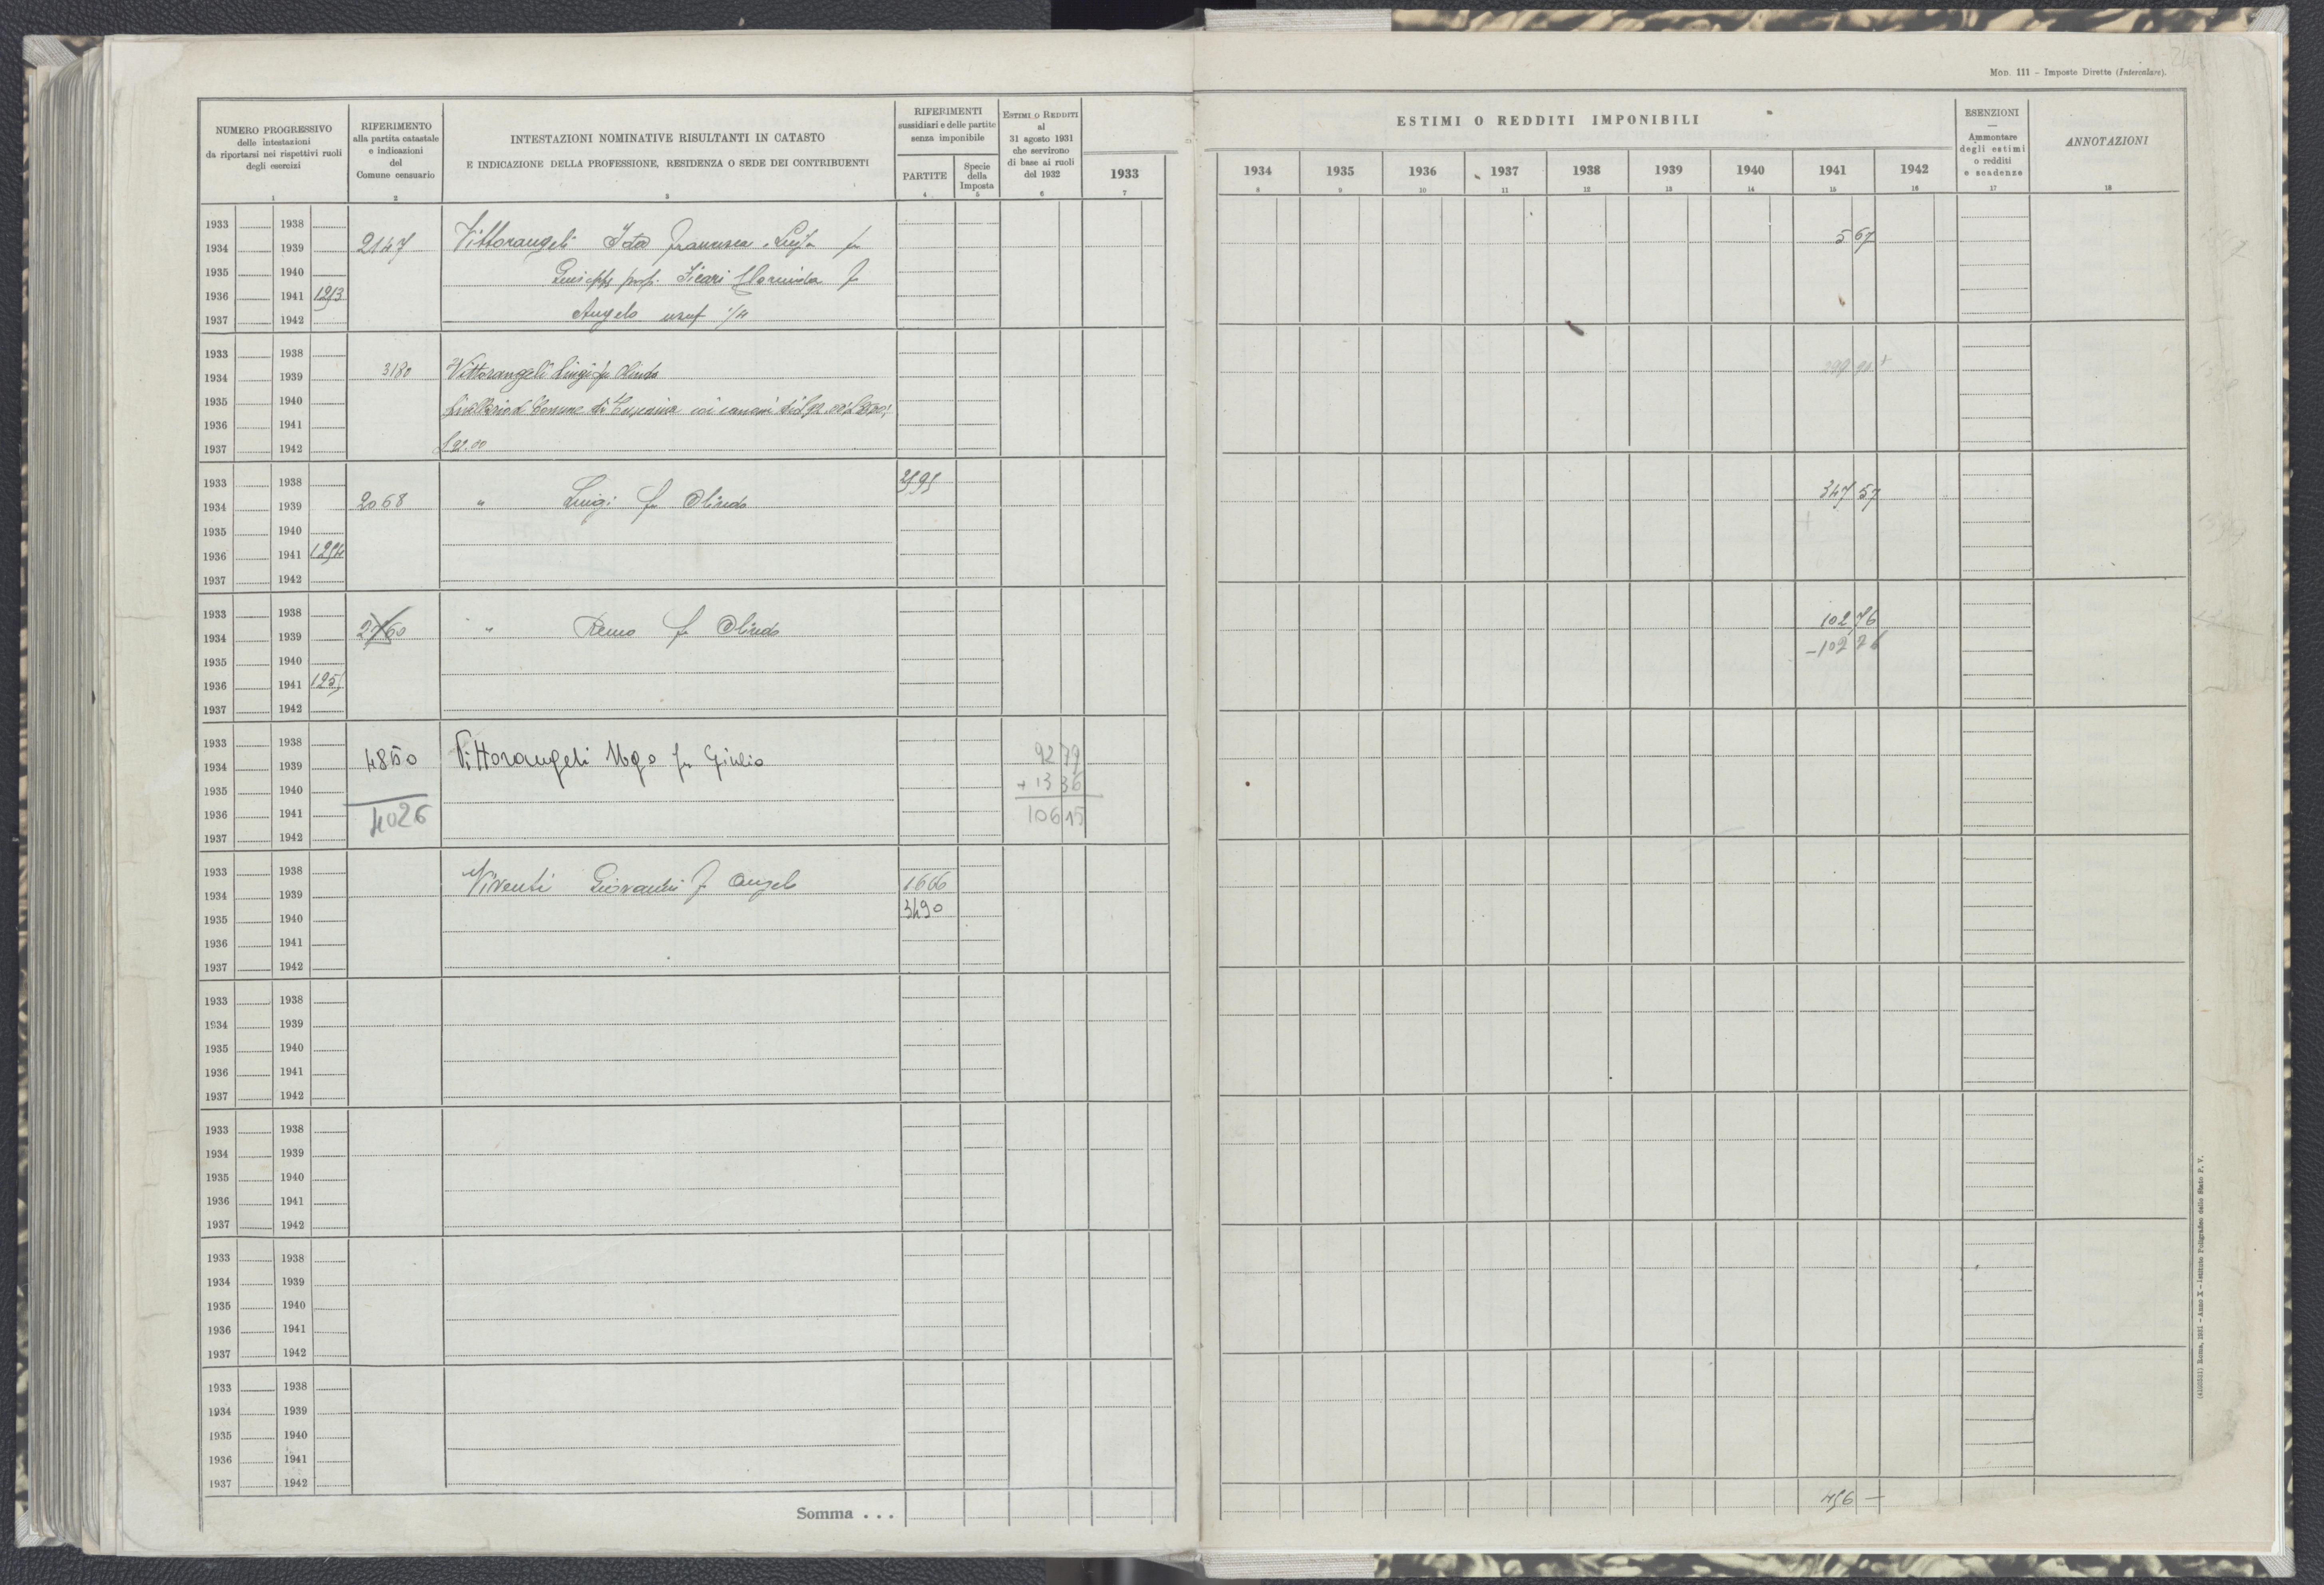 MOD. 111 – Imposte Dirette (Intercalare).
NUMERO PROGRESSIVO
delle intestazioni
da riportarsi nei rispettivi ruoli
degli esercizi
1
RIFERIMENTO
alla partita catastale
e indicazioni
del
Comune censuario
2
INTESTAZIONI NOMINATIVE RISULTANTI IN CATASTO
E INDICAZIONE DELLA PROFESSIONE, RESIDENZA O SEDE DEI CONTRIBUENTI
3
RIFERIMENTI
sussidiari e delle partite
senza imponibile
PARTITE
4
Specie
della
Imposta
5
ESTIMI O REDDITI
al
31 agosto 1931
che servirono
di base ai ruoli
del 1932
6
1933
7
ESTIMI O REDDITI IMPONIBILI
1934 1935 1936 1937 1938 1939 1940 1941 1942
8 9 10 11 12 13 14 15 16
ESENZIONI
—
Ammontare
degli estimi
o redditi
e scadenze
17
ANNOTAZIONI
18
1933 1938
1934 1939 2147 Vittorangeli Ida Francesca Luisa fu 5 67
1935 1940 Giuseppe prop.
1936 1941 1293
1937 1942 Angelo usuf
1933 1938
1934 1939 3180 Vittorangeli Luigi fu Olindo
1935 1940 livellario al Comune di
1936 1941
1937 1942 £ 92.00
1933 1938
1934 1939 2068 " Luigi fu Olindo 347 57
1935 1940
1936 1941 1294
1937 1942
1933 1938
1934 1939 2760 " Remo fu Olindo 102 76
1935 1940 – 102 76
1936 1941 1295
1937 1942
1933 1938
1934 1939 4850 Vittorangeli Ugo fu Giulio 92 79
1935 1940 + 13 36
1936 1941 4026 106 15
1937 1942
1933 1938
1934 1939 Viventi Giovanni f Angelo 1666
1935 1940 3490
1936 1941
1937 1942
1933 1938
1934 1939
1935 1940
1936 1941
1937 1942
1933 1938
1934 1939
1935 1940
1936 1941
1937 1942
1933 1938
1934 1939
1935 1940
1936 1941
1937 1942
1933 1938
1934 1939
1935 1940
1936 1941
1937 1942
Somma . . . 456 —
Roma, 1931 – Anno X – Istituto Poligrafico dello Stato P. V.